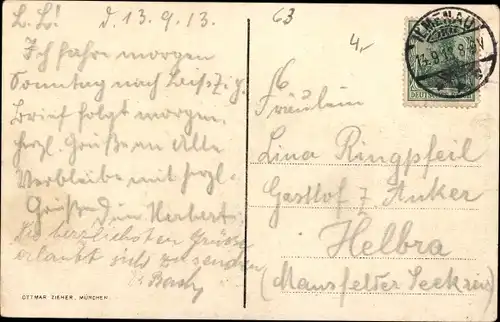 L. L! d. 13.9.13.
63
4,-
Ich fahre morgen
Sonntag nach
Brief folgt morgen.
herzl. Grüße an Alle
Verbleibe mit herzl.
Grüßen Dein Herbert.
Die herzlichsten Grüsse
erlaubt sich zu senden
OTTMAR ZIEHER, MÜNCHEN.
ILMENAU
13.9.13
Fräulein
Lina Ringpfeil
Gasthof z Anker
Helbra
(Mansfelder Seekreis)